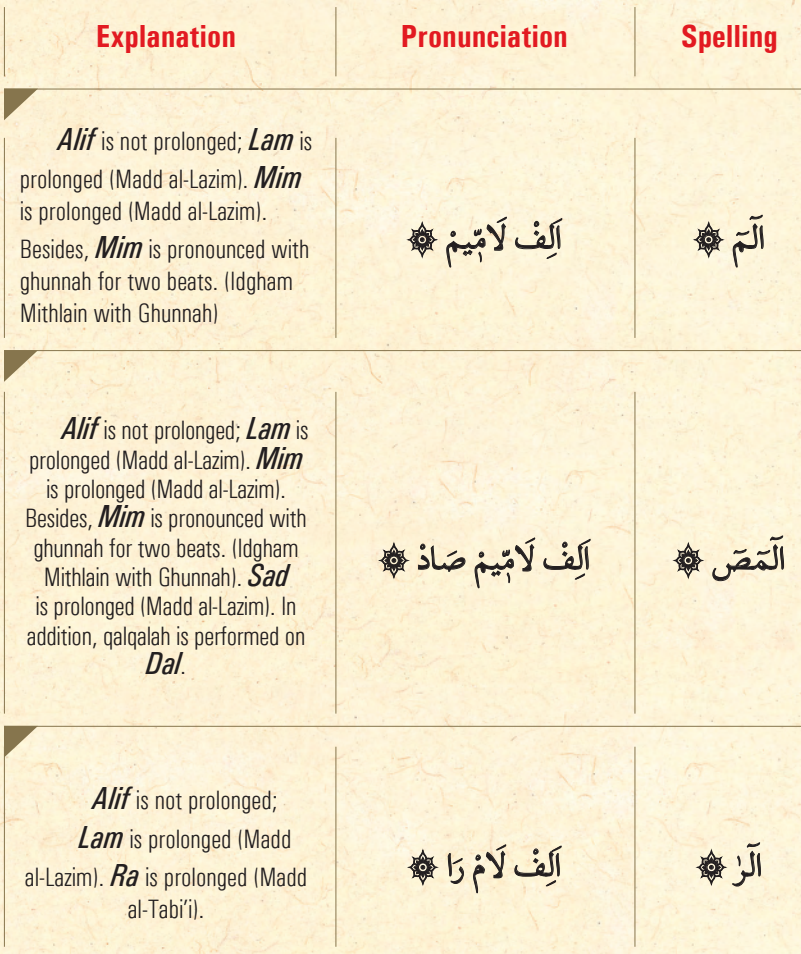 Explanation Pronunciation Spelling
Alif is not prolonged; Lam is
prolonged (Madd al-Lazim). Mim
is prolonged (Madd al-Lazim).
Besides, Mim is pronounced with
ghunnah for two beats. (Idgham
Mithlain with Ghunnah)
اَلِفْ لَامِّيمْ ۞
الٓمٓ ۞
Alif is not prolonged; Lam is
prolonged (Madd al-Lazim). Mim
is prolonged (Madd al-Lazim).
Besides, Mim is pronounced with
ghunnah for two beats. (Idgham
Mithlain with Ghunnah). Sad
is prolonged (Madd al-Lazim). In
addition, qalqalah is performed on
Dal.
اَلِفْ لَامِّيمْ صَادْ ۞
الٓمٓصٓ ۞
Alif is not prolonged;
Lam is prolonged (Madd
al-Lazim). Ra is prolonged (Madd
al-Tabi’i).
اَلِفْ لَامْ رَا ۞
الٓرٰ ۞